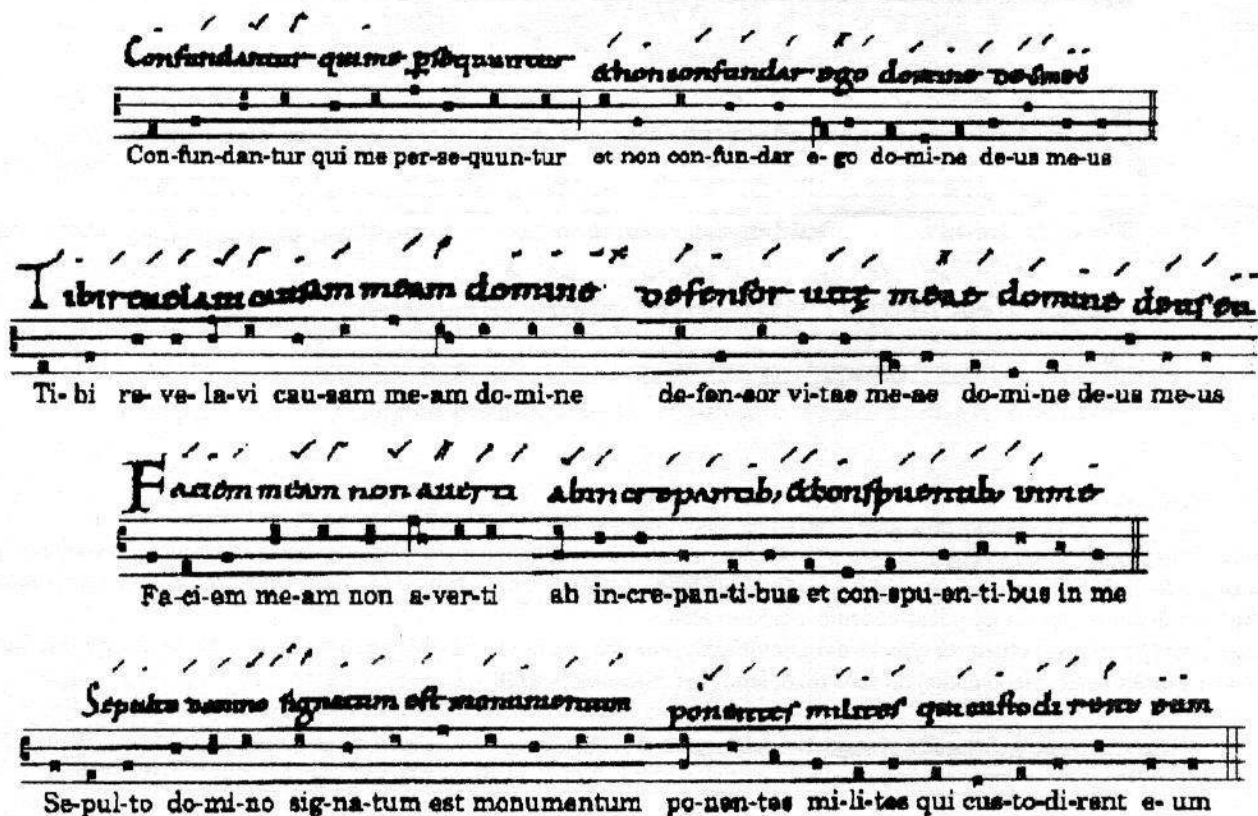 Confundantur qui me persequuntur et non confundar ego domine deus meus
Con-fun-dan-tur qui me per-se-quun-tur et non con-fun-dar e-go do-mi-ne de-us me-us
Tibi revelavi causam meam domine defensor meae domine deus
Ti-bi re-ve-la-vi cau-sam me-am do-mi-ne de-fen-sor vi-tae me-ae do-mi-ne de-us me-us
Faciem meam non averti ab increpantib; et conspuentib; in me
Fa-ci-em me-am non a-ver-ti ab in-cre-pan-ti-bus et con-spu-en-ti-bus in me
Sepulto domino signatum est monumentum ponentes milites qui custodirent eum
Se-pul-to do-mi-no sig-na-tum est monumentum po-nen-tes mi-li-tes qui cus-to-di-rent e-um